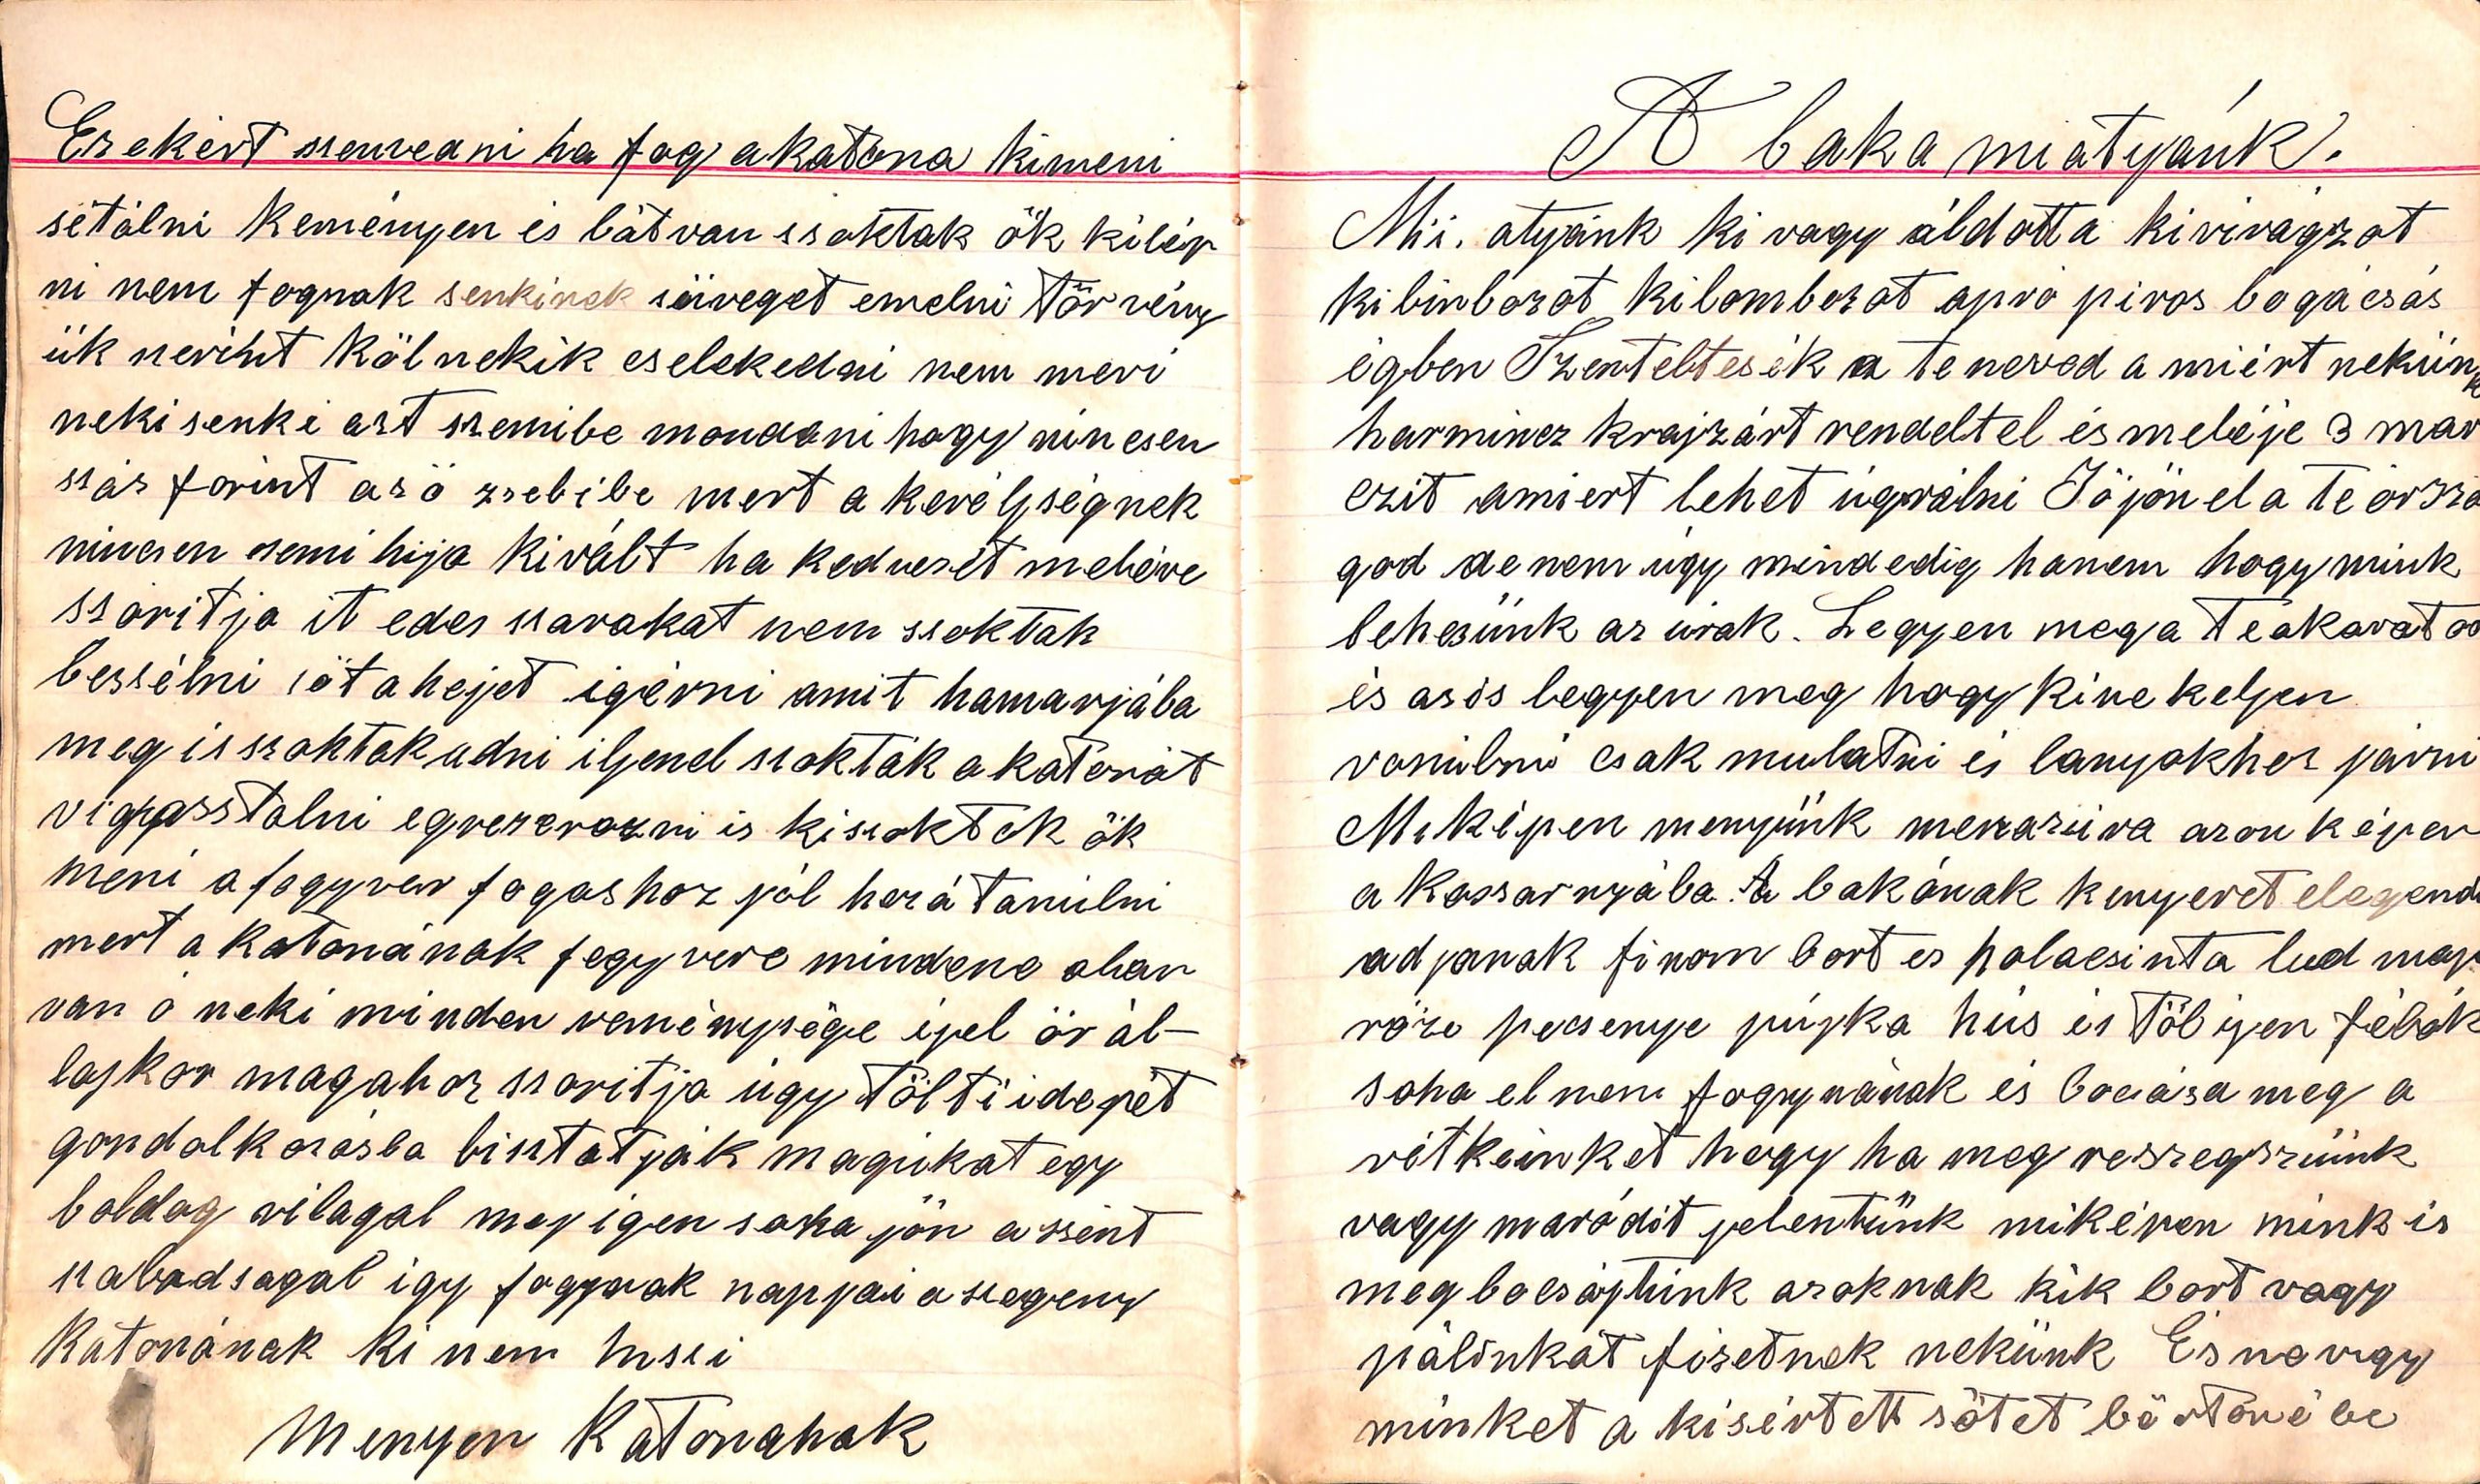 Ezekért szenvedni ha fog a katona kimeni
sétálni keményen és bátvan szoktak ők kilép
ni nem fognak senkinek süveget emelni törvény
ük nerint köl nekik cselekedni nem meri
neki senki azt szemibe mondani hogy nincsen
száz forint az ő zsebibe mert a kevéjségnek
nincsen semi hija kivált ha kedvesét meléve
szoritja it edes szavakat nem szoktak
beszélni sőt a hejet igérni amit hamarjába
meg is szoktak adni iljenel szokták a katonát
vigasztalni egrecerozni is kiszoktak ők
meni a fegyver fogashoz jól hozá tanúlni
mert a katonának fegyvere mindene aban
van ő neki minden reménysége éjel őr ál-
laskor magahoz szoritja úgy tölti idejét
gondolkozásba bisztatják magukat egy
boldog vilagal mej igen soka jön a szent
szabadsagal igy fogynak nappai a szegeny
katonának ki nem hiszi
Menyen Katonahak
A baka miatyánk.
Mii. atyánk ki vagy áldotta kivirágzot
kibinbozot kilombozot apró piros bogácsás
égben Szenteltesék a te neved a miért nekünk
harmincz krajzárt rendeltel és meléje 3 mar
czit amiert lehet úgrálni Jöjön el a te orszá
god de nem úgy mind edig hanem hogy mink
lehesünk az urak. Legyen meg a te akarat od
és az is legyen meg hogy kine keljen
vonúlni csak mulatni és lanyokhoz járni
Miképen menyünk menazsira azon képen
a kaszarnyába. A bakának kenyeret elegend
adjanak finom bort es palacsinta lud maj
róze pecsenye pújka hús és töb ijen félék
soha el nem fogynának és bocása meg a
vétkeinket hogy ha meg reszegszünk
vagy maródit jelentünk miképen mink is
megbocsájtunk azoknak kik bort vagy
pálinkát fizetnek nekünk És ne vigy
minket a kisértett sötet börtönébe